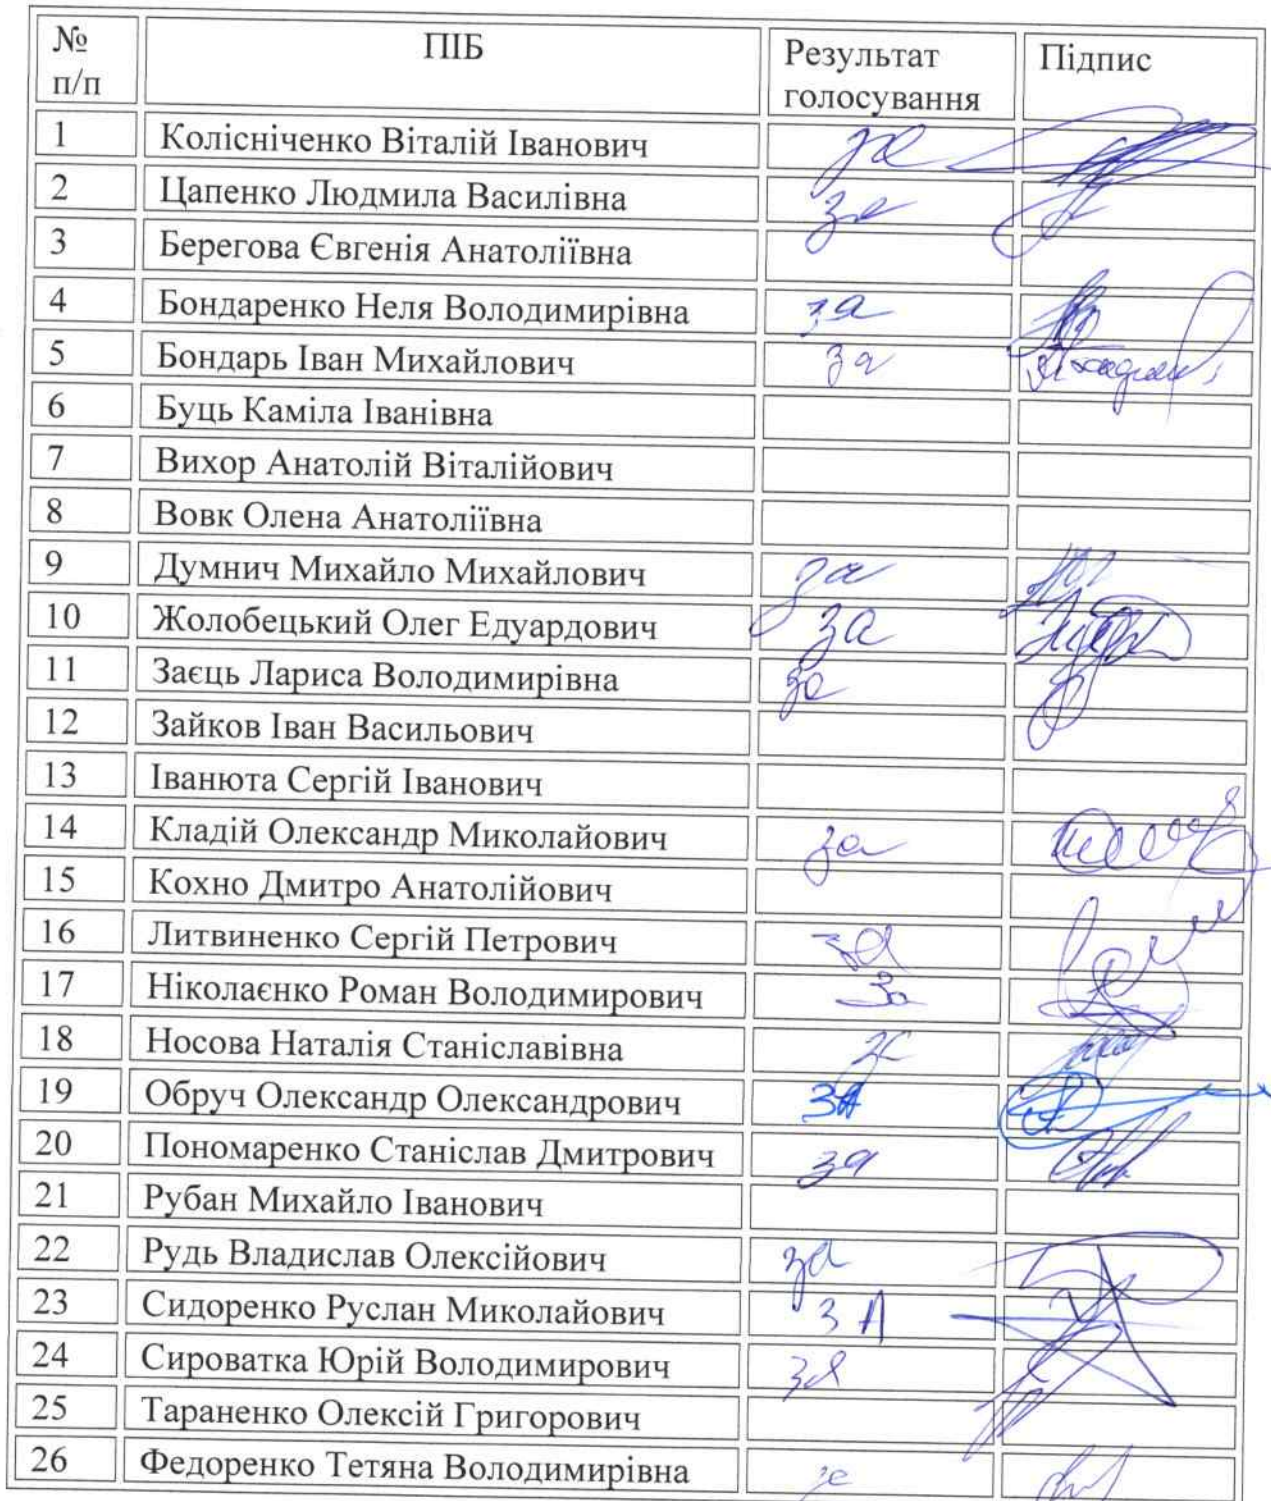 № ПІБ Результат Підпис
п/п голосування
1 Колісніченко Віталій Іванович за
2 Цапенко Людмила Василівна за
3 Берегова Євгенія Анатоліївна
4 Бондаренко Неля Володимирівна за
5 Бондарь Іван Михайлович за
6 Буць Каміла Іванівна
7 Вихор Анатолій Віталійович
8 Вовк Олена Анатоліївна
9 Думнич Михайло Михайлович за
10 Жолобецький Олег Едуардович за
11 Заєць Лариса Володимирівна за
12 Зайков Іван Васильович
13 Іванюта Сергій Іванович
14 Кладій Олександр Миколайович за
15 Кохно Дмитро Анатолійович
16 Литвиненко Сергій Петрович за
17 Ніколаєнко Роман Володимирович за
18 Носова Наталія Станіславівна за
19 Обруч Олександр Олександрович ЗА
20 Пономаренко Станіслав Дмитрович за
21 Рубан Михайло Іванович
22 Рудь Владислав Олексійович за
23 Сидоренко Руслан Миколайович ЗА
24 Сироватка Юрій Володимирович за
25 Тараненко Олексій Григорович
26 Федоренко Тетяна Володимирівна за